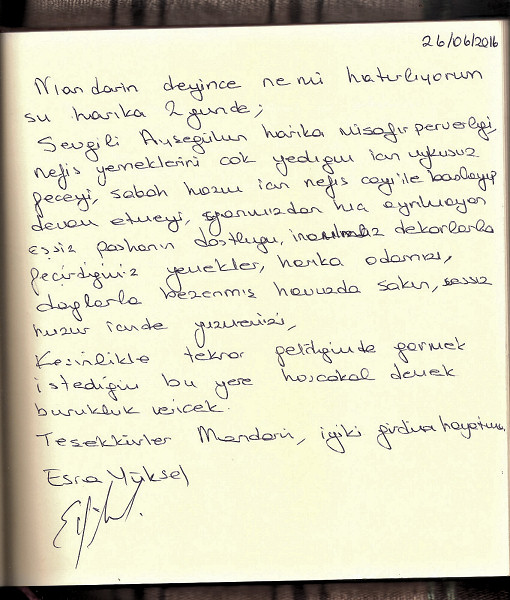 26/06/2016
Mandarin deyince ne mi hatırlıyorum
şu harika 2 günde;
Sevgili Ayşegülün harika misafirperverliği,
nefis yemeklerini çok yediğim için uykusuz
geceyi, sabah hazım için nefis çayı ile başlayıp
devam etmeyi, yanımızdan hiç ayrılmayan
eşsiz paşhanın dostluğu, inanılmaz dekorlarla
geçirdiğimiz yemekler, harika odamızı,
dağlarla bezenmiş havuzda sakin, sessiz
huzur içinde yüzmemizi,
Kesinlikle tekrar geldiğimde görmek
istediğim bu yere hoşcakal demek
burukluk veicek.
Teşekkürler Mandarin, iyiki girdin hayatıma.
Esra Yüksel